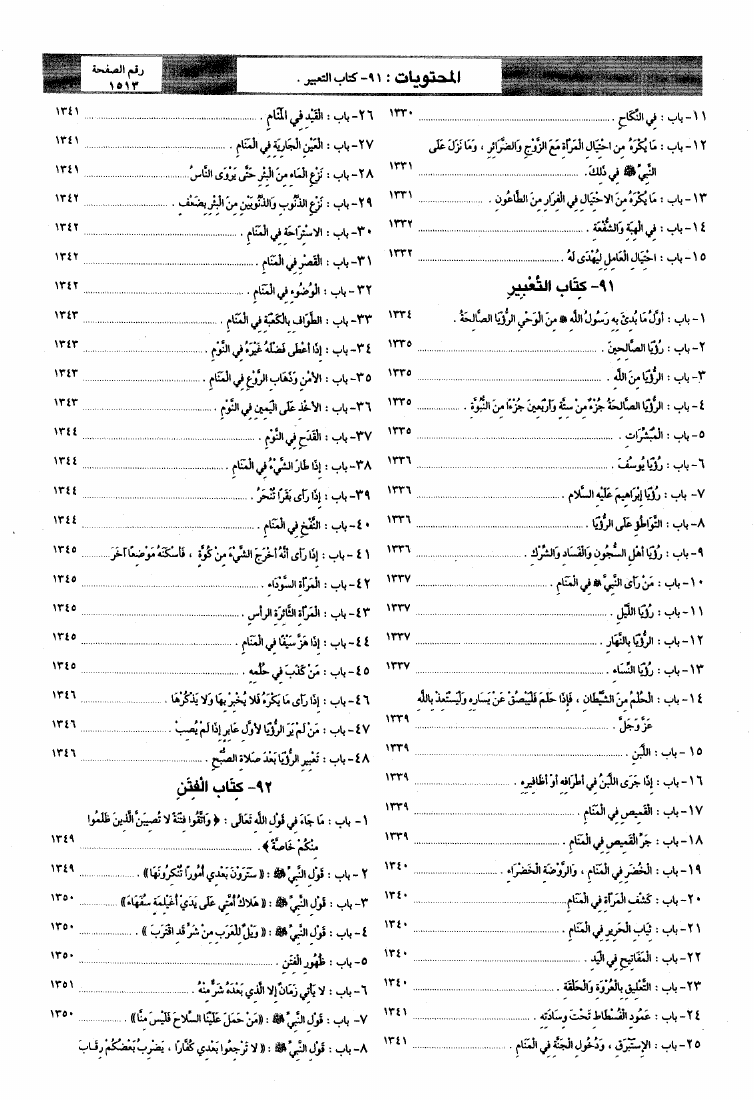 المحتويات : ٩١- كتاب التعبير .
رقم الصفحة
١٥١٣
١١- باب : فِي النِّكَاحِ . ١٣٣٠
١٢- باب : مَا يُكْرَهُ مِنِ احْتِيَالِ الْمَرْأَةِ مَعَ الزَّوْجِ وَالضَّرَائِرِ ، وَمَا نَزَلَ عَلَى
النَّبِيِّ ﷺ فِي ذَلِكَ. ١٣٣١
١٣- باب : مَا يُكْرَهُ مِنَ الاحْتِيَالِ فِي الْفِرَارِ مِنَ الطَّاعُونِ . ١٣٣١
١٤- باب : فِي الْهِبَةِ وَالشُّفْعَةِ . ١٣٣٢
١٥- باب : احْتِيَالِ الْعَامِلِ لِيُهْدَى لَهُ . ١٣٣٢
٩١- كِتَاب التَّعْبِير
١- باب : أَوَّلُ مَا بُدِئَ بِهِ رَسُولُ اللَّهِ ﷺ مِنَ الْوَحْيِ الرُّؤْيَا الصَّالِحَةُ . ١٣٣٤
٢- باب : رُؤْيَا الصَّالِحِينَ . ١٣٣٥
٣- باب : الرُّؤْيَا مِنَ اللَّهِ . ١٣٣٥
٤- باب : الرُّؤْيَا الصَّالِحَةُ جُزْءٌ مِنْ سِتَّةٍ وَأَرْبَعِينَ جُزْءًا مِنَ النُّبُوَّةِ . ١٣٣٥
٥- باب : الْمُبَشِّرَاتِ . ١٣٣٥
٦- باب : رُؤْيَا يُوسُفَ . ١٣٣٦
٧- باب : رُؤْيَا إِبْرَاهِيمَ عَلَيْهِ السَّلام . ١٣٣٦
٨- باب : التَّوَاطُؤِ عَلَى الرُّؤْيَا . ١٣٣٦
٩- باب : رُؤْيَا أَهْلِ السُّجُونِ وَالْفَسَادِ وَالشِّرْكِ . ١٣٣٦
١٠- باب : مَنْ رَأَى النَّبِيَّ ﷺ فِي الْمَنَامِ . ١٣٣٧
١١- باب : رُؤْيَا اللَّيْلِ . ١٣٣٧
١٢- باب : الرُّؤْيَا بِالنَّهَارِ . ١٣٣٧
١٣- باب : رُؤْيَا النِّسَاءِ . ١٣٣٧
١٤- باب : الْحُلْمُ مِنَ الشَّيْطَانِ ، فَإِذَا حَلَمَ فَلْيَبْصُقْ عَنْ يَسَارِهِ وَلْيَسْتَعِذْ بِاللَّهِ
عَزَّ وَجَلَّ . ١٣٣٩
١٥ - باب : اللَّبَنِ . ١٣٣٩
١٦- باب : إِذَا جَرَى اللَّبَنُ فِي أَطْرَافِهِ أَوْ أَظَافِيرِهِ . ١٣٣٩
١٧- باب : الْقَمِيصِ فِي الْمَنَامِ . ١٣٣٩
١٨- باب : جَرِّ الْقَمِيصِ فِي الْمَنَامِ . ١٣٣٩
١٩- باب : الْخُضَرِ فِي الْمَنَامِ ، وَالرَّوْضَةِ الْخَضْرَاءِ . ١٣٤٠
٢٠- باب : كَشْفِ الْمَرْأَةِ فِي الْمَنَامِ . ١٣٤٠
٢١- باب : ثِيَابِ الْحَرِيرِ فِي الْمَنَامِ . ١٣٤٠
٢٢- باب : الْمَفَاتِيحِ فِي الْيَدِ . ١٣٤٠
٢٣- باب : التَّعْلِيقِ بِالْعُرْوَةِ وَالْحَلْقَةِ . ١٣٤٠
٢٤- باب : عَمُودِ الْفُسْطَاطِ تَحْتَ وِسَادَتِهِ . ١٣٤١
٢٥- باب : الإِسْتَبْرَقِ ، وَدُخُولِ الْجَنَّةِ فِي الْمَنَامِ . ١٣٤١
٢٦- باب : الْقَيْدِ فِي الْمَنَامِ . ١٣٤١
٢٧- باب : الْعَيْنِ الْجَارِيَةِ فِي الْمَنَامِ . ١٣٤١
٢٨- باب : نَزْعِ الْمَاءِ مِنَ الْبِئْرِ حَتَّى يَرْوَى النَّاسُ ١٣٤١
٢٩- باب : نَزْعِ الذَّنُوبِ وَالذَّنُوبَيْنِ مِنَ الْبِئْرِ بِضَعْفٍ . ١٣٤٢
٣٠- باب : الاسْتِرَاحَةِ فِي الْمَنَامِ . ١٣٤٢
٣١- باب : الْقَصْرِ فِي الْمَنَامِ . ١٣٤٢
٣٢- باب : الْوُضُوءِ فِي الْمَنَامِ . ١٣٤٢
٣٣- باب : الطَّوَافِ بِالْكَعْبَةِ فِي الْمَنَامِ . ١٣٤٣
٣٤- باب : إِذَا أَعْطَى فَضْلَهُ غَيْرَهُ فِي النَّوْمِ . ١٣٤٣
٣٥- باب : الأَمْنِ وَذَهَابِ الرَّوْعِ فِي الْمَنَامِ . ١٣٤٣
٣٦- باب : الأَخْذِ عَلَى الْيَمِينِ فِي النَّوْمِ . ١٣٤٣
٣٧- باب : الْقَدَحِ فِي النَّوْمِ . ١٣٤٤
٣٨- باب : إِذَا طَارَ الشَّيْءُ فِي الْمَنَامِ . ١٣٤٤
٣٩- باب : إِذَا رَأَى بَقَرًا تُنْحَرُ . ١٣٤٤
٤٠- باب : النَّفْخِ فِي الْمَنَامِ . ١٣٤٤
٤١- باب : إِذَا رَأَى أَنَّهُ أَخْرَجَ الشَّيْءَ مِنْ كُورَةٍ ، فَأَسْكَنَهُ مَوْضِعًا آخَرَ ١٣٤٥
٤٢- باب : الْمَرْأَةِ السَّوْدَاءِ . ١٣٤٥
٤٣- باب : الْمَرْأَةِ الثَّائِرَةِ الرَّأْسِ . ١٣٤٥
٤٤- باب : إِذَا هَزَّ سَيْفًا فِي الْمَنَامِ . ١٣٤٥
٤٥- باب : مَنْ كَذَبَ فِي حُلُمِهِ . ١٣٤٥
٤٦- باب : إِذَا رَأَى مَا يَكْرَهُ فَلا يُخْبِرْ بِهَا وَلا يَذْكُرْهَا . ١٣٤٦
٤٧- باب : مَنْ لَمْ يَرَ الرُّؤْيَا لأَوَّلِ عَابِرٍ إِذَا لَمْ يُصِبْ . ١٣٤٦
٤٨- باب : تَعْبِيرِ الرُّؤْيَا بَعْدَ صَلاةِ الصُّبْحِ . ١٣٤٦
٩٢- كِتَاب الْفِتَنِ
١- باب : مَا جَاءَ فِي قَوْلِ اللَّهِ تَعَالَى : ﴿ وَاتَّقُوا فِتْنَةً لا تُصِيبَنَّ الَّذِينَ ظَلَمُوا
مِنْكُمْ خَاصَّةً ﴾ . ١٣٤٩
٢- باب : قَوْلِ النَّبِيِّ ﷺ : (( سَتَرَوْنَ بَعْدِي أُمُورًا تُنْكِرُونَهَا)) . ١٣٤٩
٣- باب : قَوْلِ النَّبِيِّ ﷺ : ((هَلاكُ أُمَّتِي عَلَى يَدَيْ أُغَيْلِمَةٍ سُفَهَاءَ)) ١٣٥٠
٤- باب : قَوْلِ النَّبِيِّ ﷺ : ((وَيْلٌ لِلْعَرَبِ مِنْ شَرٍّ قَدِ اقْتَرَبَ )) . ١٣٥٠
٥- باب : ظُهُورِ الْفِتَنِ . ١٣٥٠
٦- باب : لا يَأْتِي زَمَانٌ إِلا الَّذِي بَعْدَهُ شَرٌّ مِنْهُ . ١٣٥١
٧- باب : قَوْلِ النَّبِيِّ ﷺ : ((مَنْ حَمَلَ عَلَيْنَا السِّلاحَ فَلَيْسَ مِنَّا)) . ١٣٥٠
٨- باب : قَوْلِ النَّبِيِّ ﷺ : (( لا تَرْجِعُوا بَعْدِي كُفَّارًا ، يَضْرِبُ بَعْضُكُمْ رِقَابَ